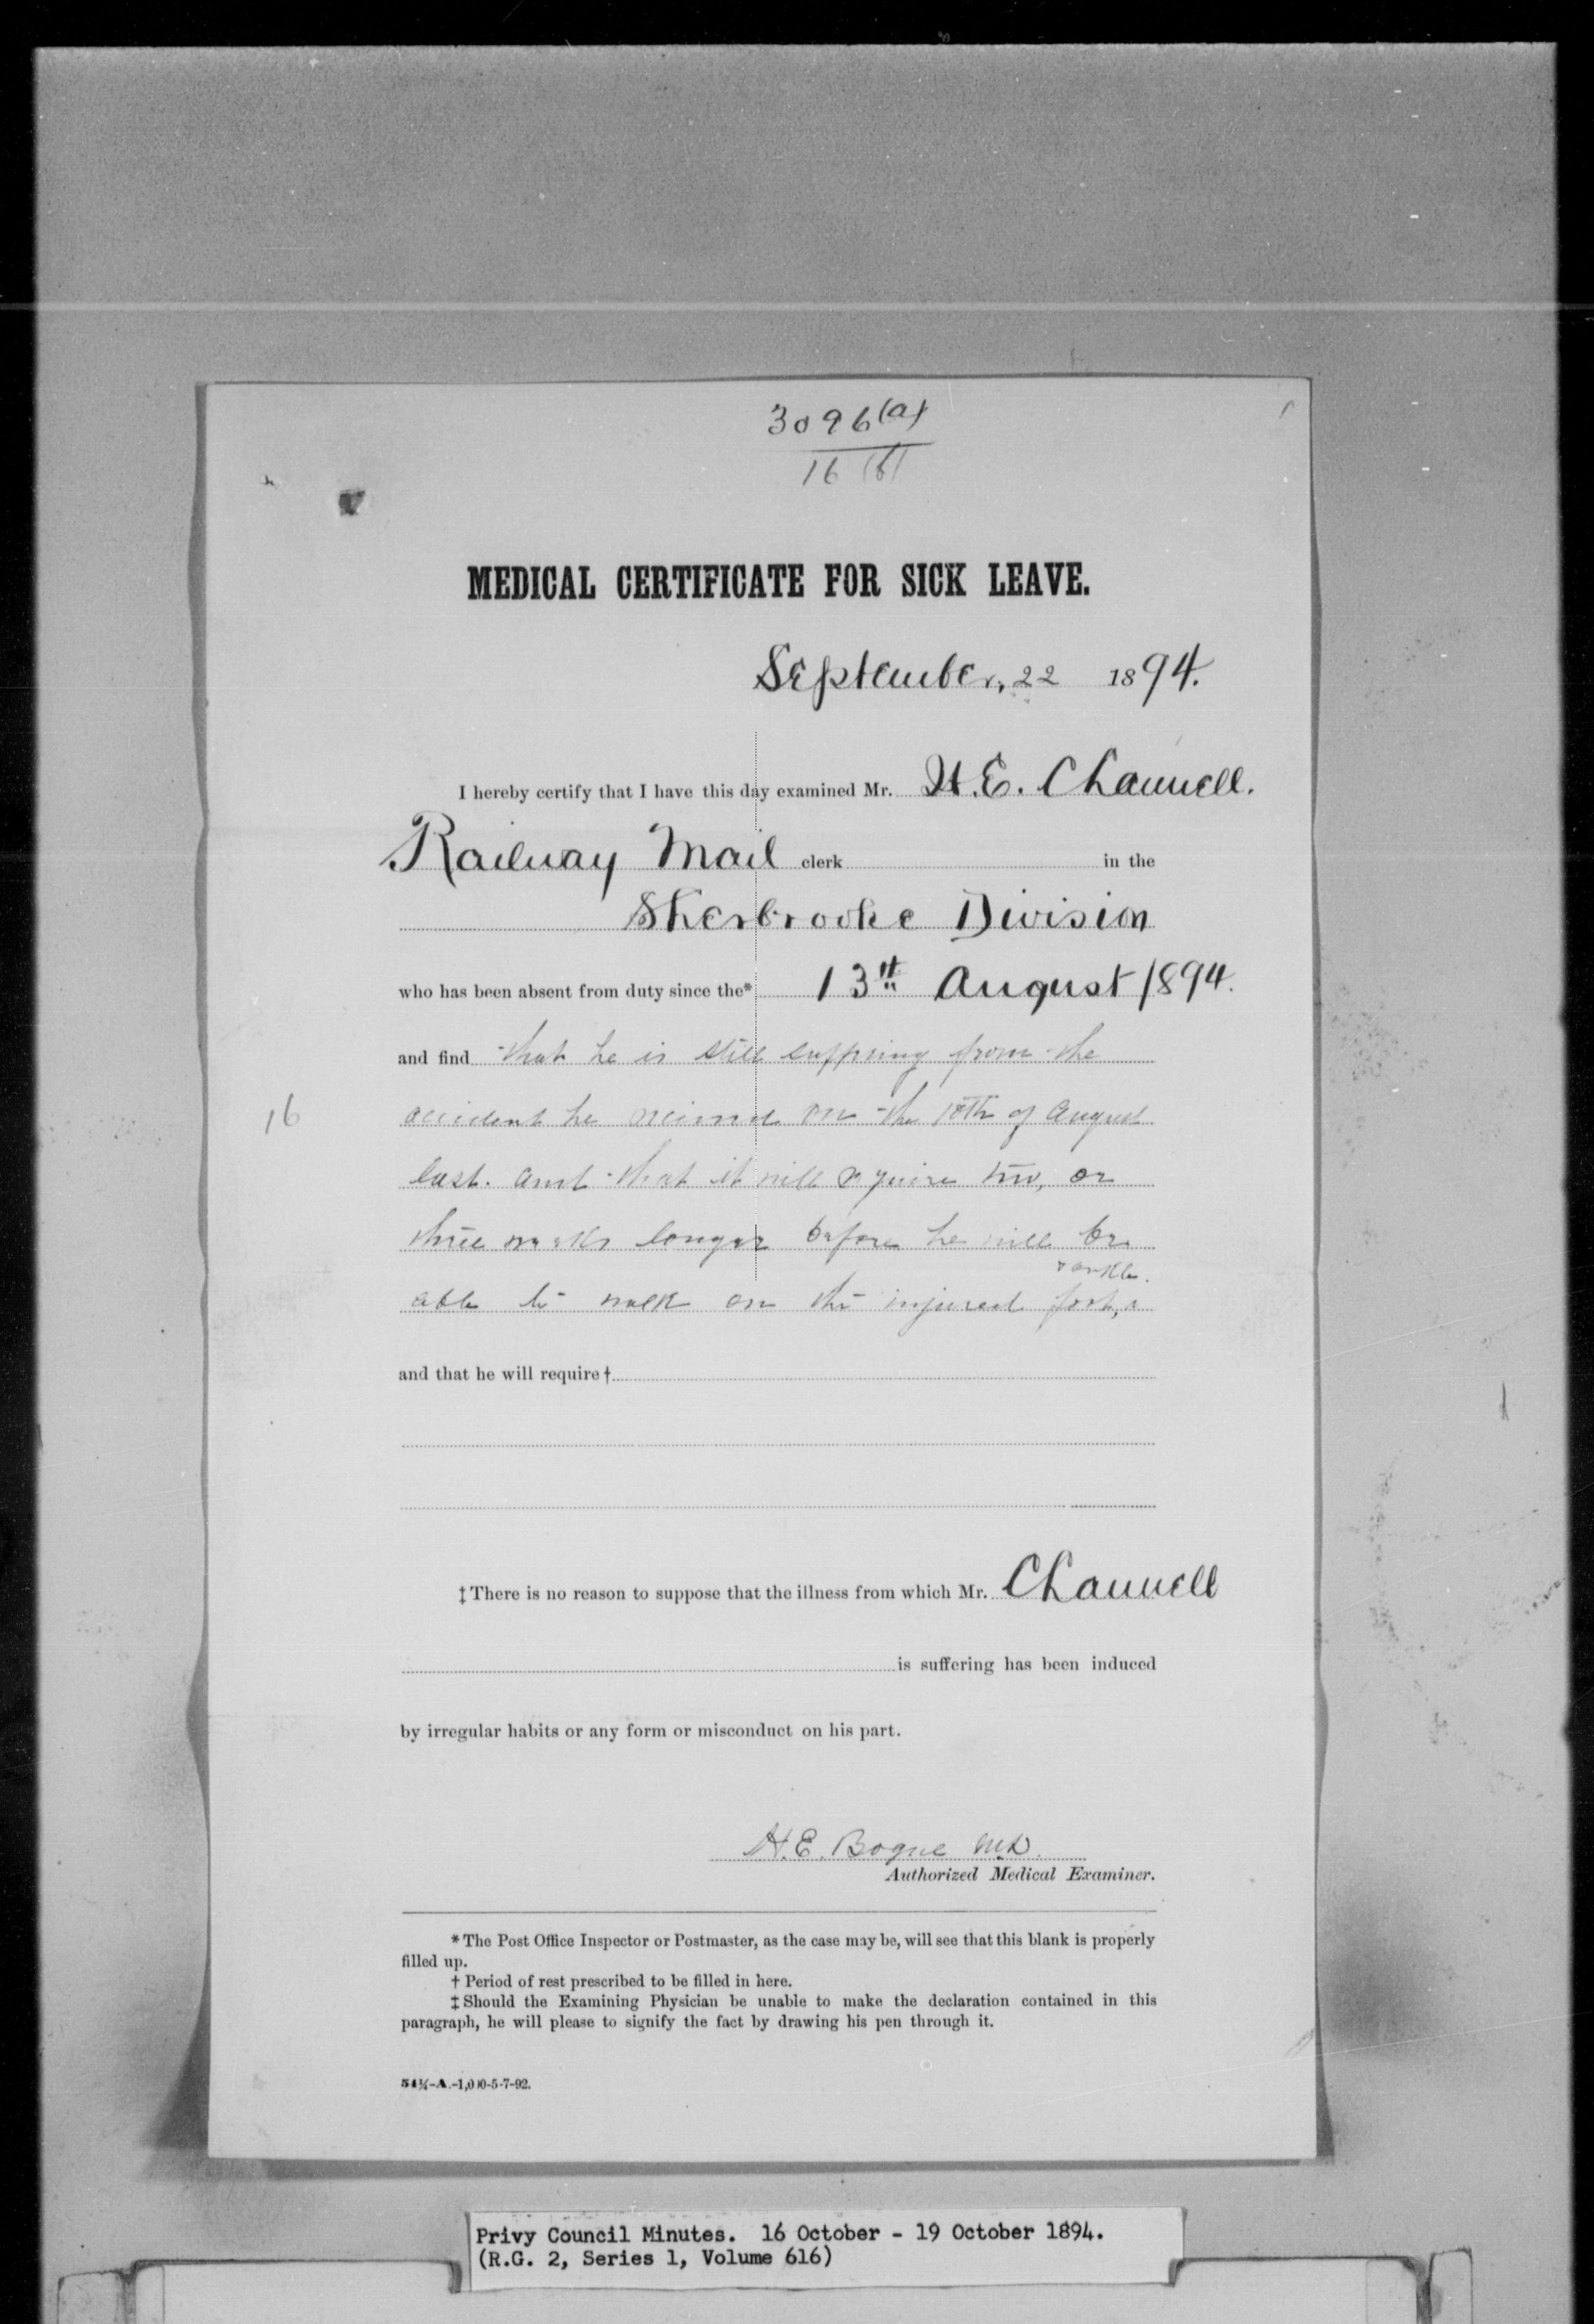 3096(a)
16 (b)
MEDICAL CERTIFICATE FOR SICK LEAVE.
September, 22 1894.
I hereby certify that I have this day examined Mr. H. E. Channell.
Railway Mail clerk in the
Sherbrooke Division
who has been absent from duty since the* 13th August 1894.
and find that he is still suffering from the
16
accident he received on the 10th of August
last. and that it will require two, or
three weeks longer before he will be
& ankle.
able to walk on the injured foot,
and that he will require †
‡ There is no reason to suppose that the illness from which Mr. Channell
is suffering has been induced
by irregular habits or any form or misconduct on his part.
H. E. Bogue M.D.
Authorized Medical Examiner.
* The Post Office Inspector or Postmaster, as the case may be, will see that this blank is properly
filled up.
† Period of rest prescribed to be filled in here.
‡ Should the Examining Physician be unable to make the declaration contained in this
paragraph, he will please to signify the fact by drawing his pen through it.
54½-A.-1,000-5-7-92.
Privy Council Minutes. 16 October - 19 October 1894.
(R.G. 2, Series 1, Volume 616)